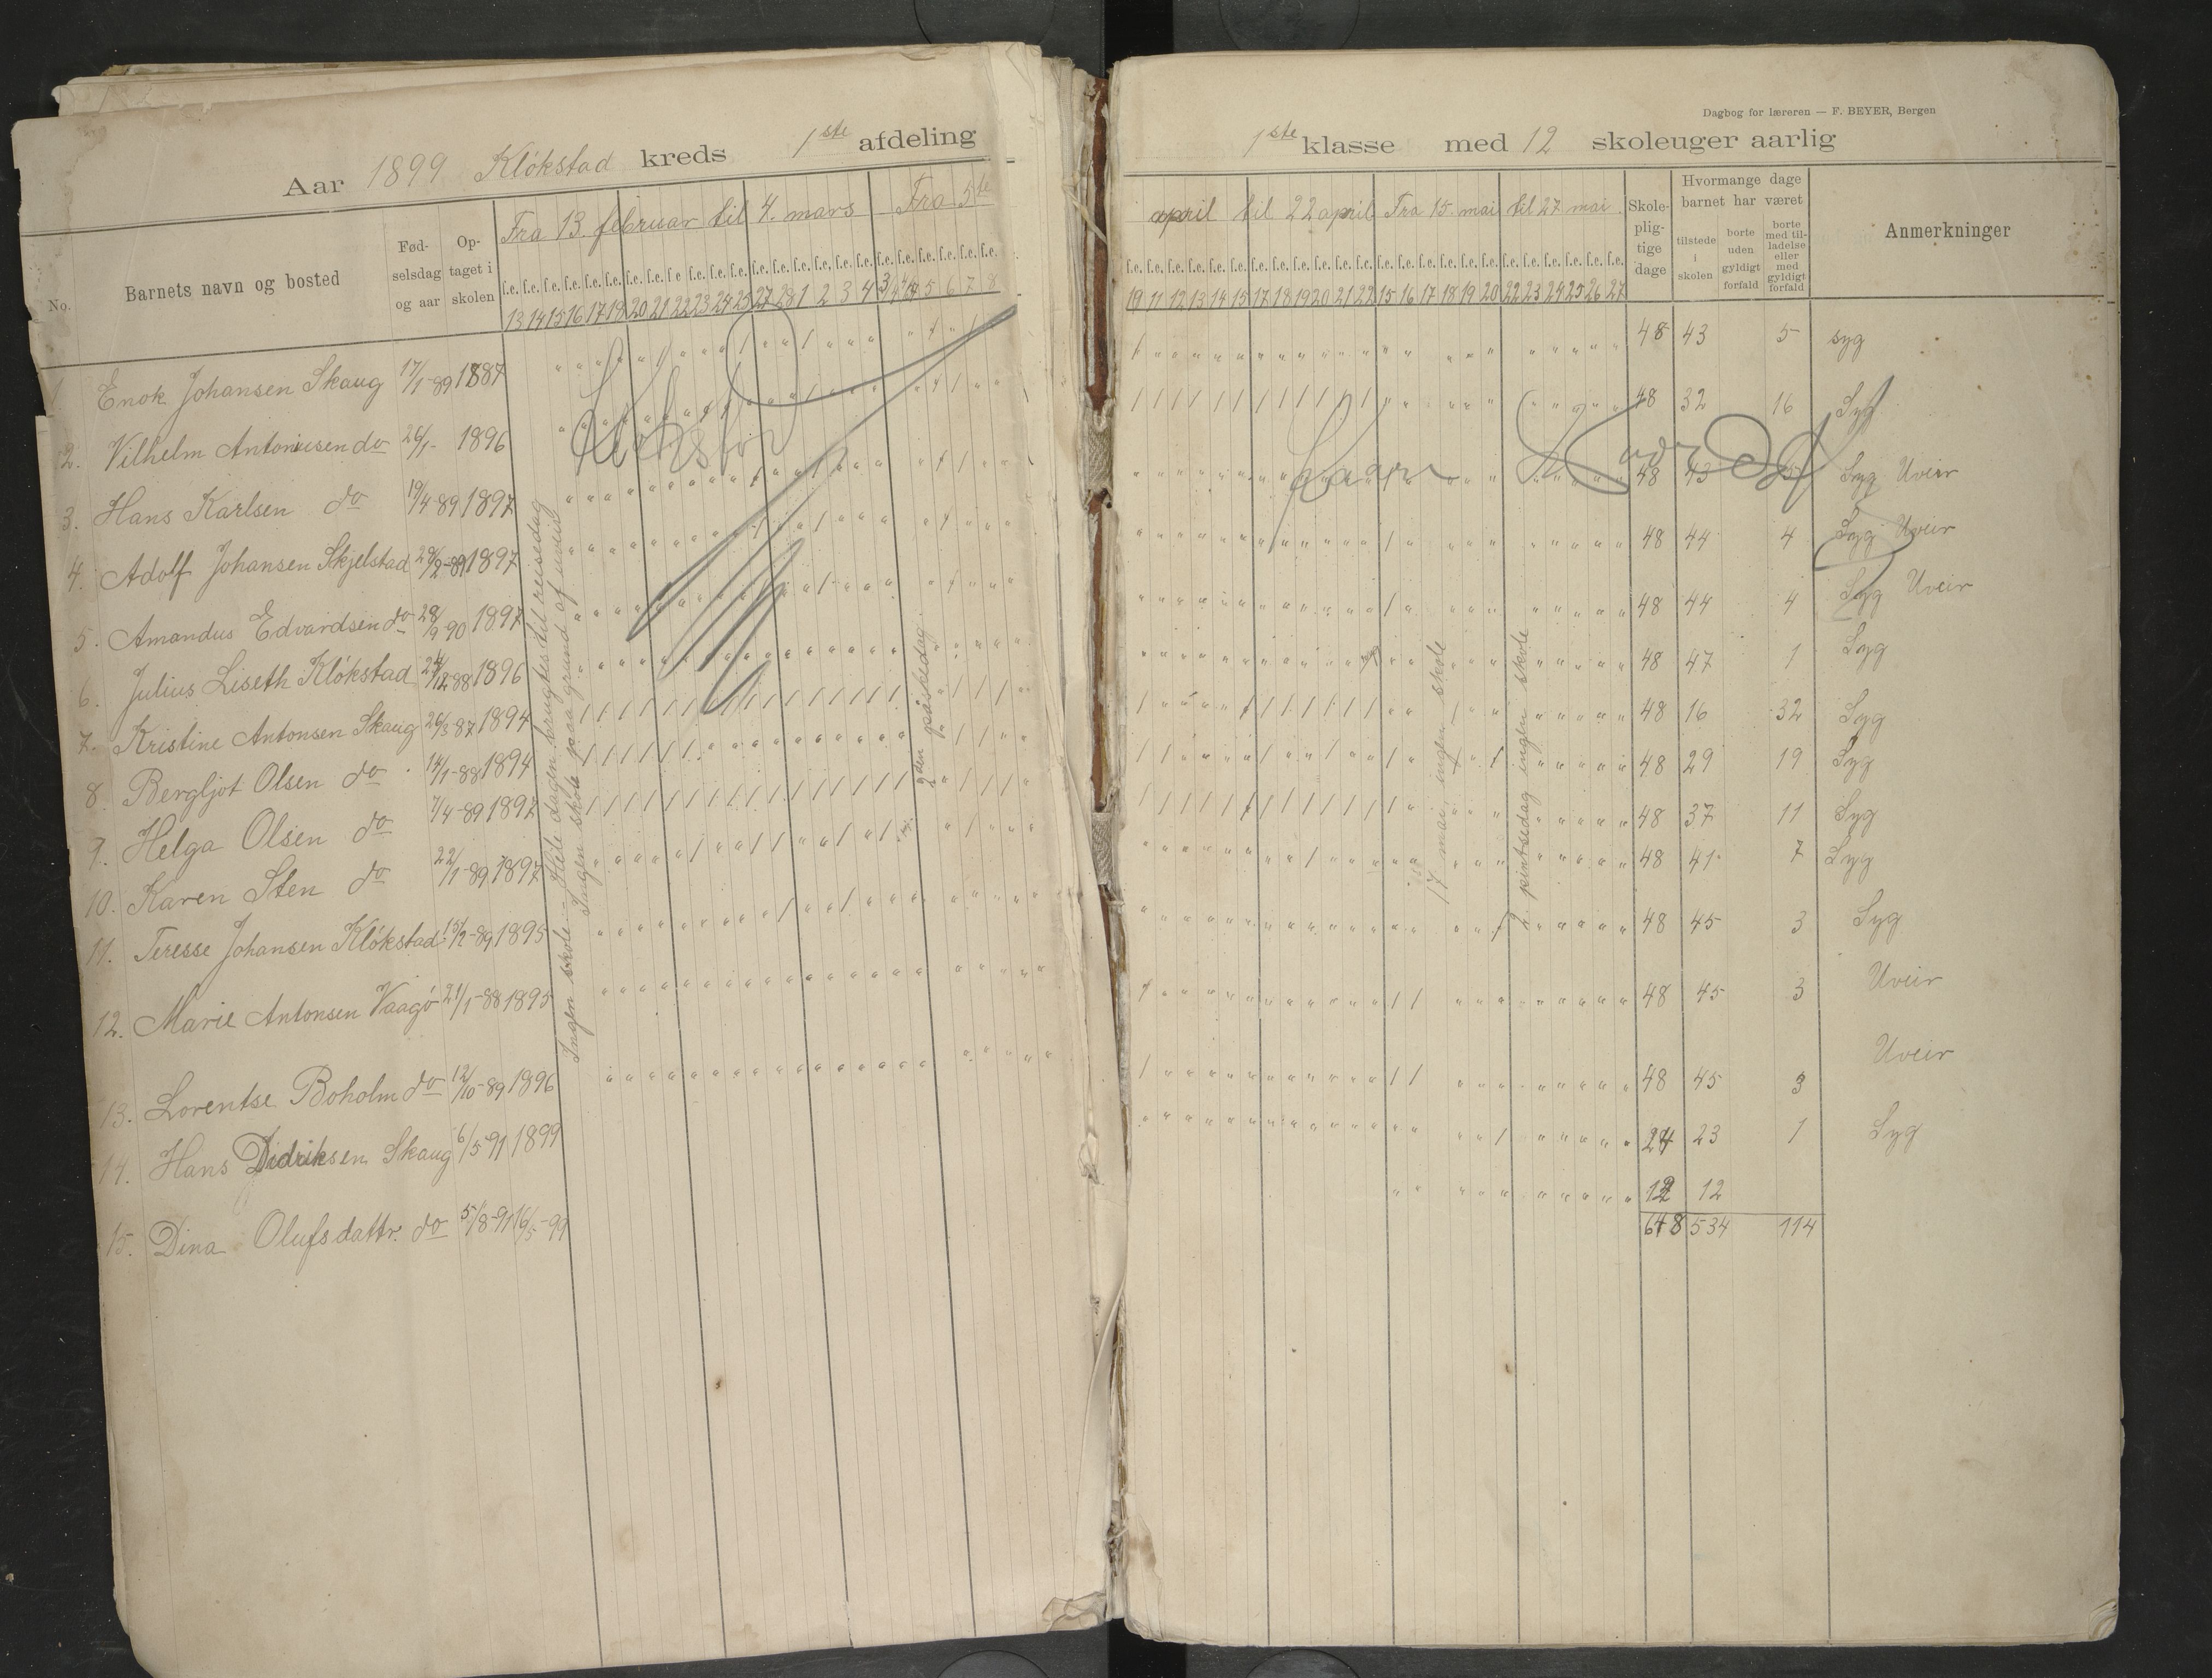 Dagbog for læreren — F. BEYER, Bergen
Aar 1899 Klókstad kreds 1ste afdeling
1ste klasse med 12 skoleuger aarlig
No. Barnets navn og bosted Fødselsdag og aar Optaget i skolen
Fra 13. februar til 4. mars Fra 5te
april til 22 april Fra 15. mai til 27 mai.
Skolepligtige dage
Hvormange dage barnet har været
tilstede i skolen
borte uden gyldigt forfald
borte med tilladelse eller med gyldigt forfald
Anmerkninger
f.e. f.e. f.e. f.e. f.e. f.e. f.e. f.e. f.e. f.e. f.e. f.e. f.e. f.e. f.e. f.e. f.e. f.e. f.e. f.e. f.e. f.e. f.e. f.e.
13 14 15 16 17 18 20 21 22 23 24 25 27 28 1 2 3 4 3 4 5 6 7 8
11 12 13 14 15 17 18 19 20 21 22 15 16 17 18 19 20 22 23 24 25 26 27
1 Enok Johansen Skaug 17/1-89 1887 48 43 5 syg
2. Vilhelm Antoniusen do 26/1- 1896 48 32 16 Syg
3. Hans Karlsen do 19/4 89 1897 48 43 5 Syg Uveir
4. Adolf Johansen Skjelstad 29/2-89 1897 48 44 4 Syg Uveir
5. Amandus Edvardsen do 28/9 90 1897 48 44 4 Syg Uveir
6. Julius Liseth Klókstad 24/12 88 1896 48 47 1 Syg
7. Kristine Antonsen Skaug 26/3 87 1894 48 16 32 Syg
8. Bergljot Olsen do 14/1-88 1894 48 29 19 Syg
9. Helga Olsen do 7/4-89 1897 48 37 11 Syg
10. Karen Sten do 22/1-89 1897 48 41 7 Syg
11. Teresse Johansen Klókstad 15/2-89 1895 48 45 3 Syg
12. Marie Antonsen Vaagó 21/1-88 1895 48 45 3 Uveir
13. Lorentse Boholm do 12/10-89 1896 48 45 3 Uveir
14. Hans Didriksen Skaug 6/5-91 1899 24 23 1 Syg
15. Dina Olufsdattr. do 5/8-91 16/5-99 12 12
648 534 114
Ingen skole - Hele dagen brugtes til reisedag
Ingen skole paa grund af uveir
2den påskedag
17 mai ingen skole
2. pintsedag ingen skole